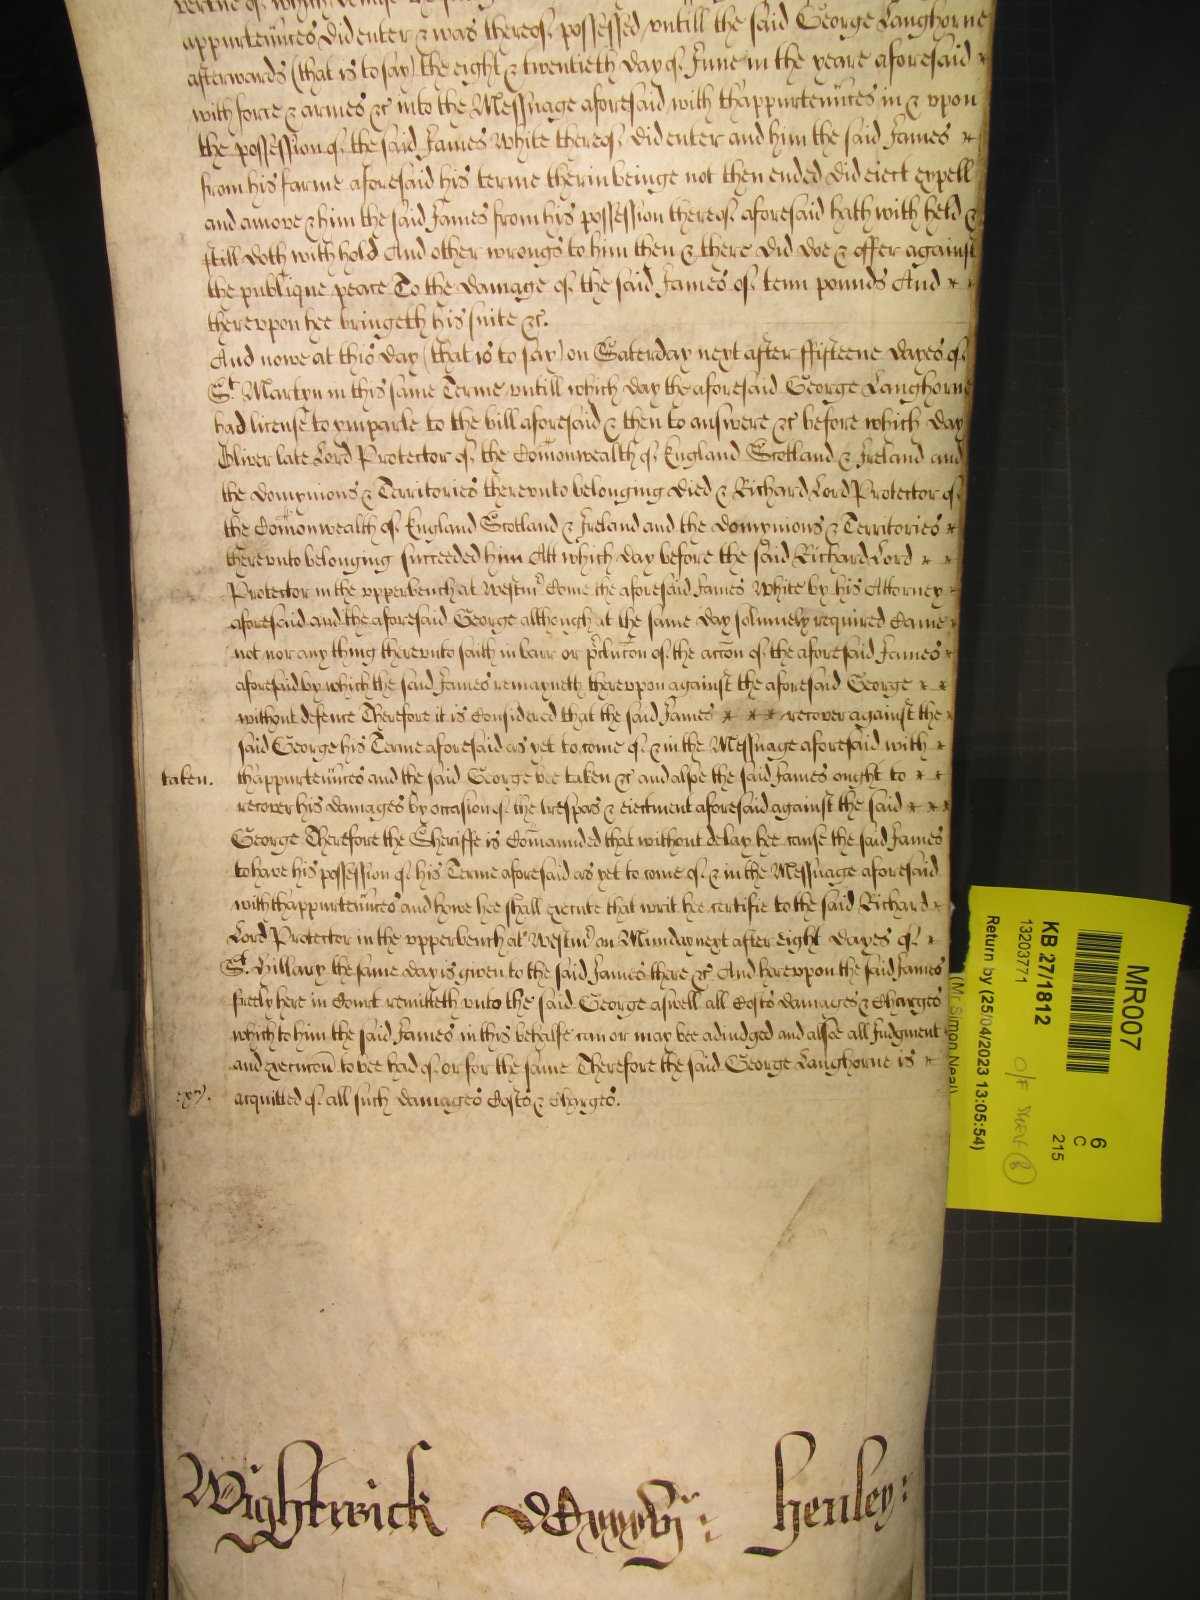 vertue of which demise
appurtenñces did enter & was thereof possessed untill the said George Langhorne
afterwards (that is to say) the eight & twentieth day of June in the yeare aforesaid
with force & armes &c into the Messuage aforesaid with thappurtenñces in & vpon
the possession of the said James White thereof did enter and him the said James
from his farme aforesaid his terme therin beinge not then ended did eiect expell
and amove & him the said James from his possession thereof aforesaid hath with held &
still doth with hold And other wrongs to him then & there did doe & offer against
the publique peace To the damage of the said James of tenn pounds And
therevpon hee bringeth his suite &c.
And nowe at this day (that is to say) on Saterday next after ffifteene dayes of
St. Martyn in this same Terme untill which day the aforesaid George Langhorne
had license to ymparle to the bill aforesaid & then to answere &c before which day
Oliver late Lord Protector of the Com̃onwealth of England Scotland & Ireland and
the domynions & Territories therevnto belonging died & Richard Lord Protector of
the Com̃onwealth of England Scotland & Ireland and the domynions & Territories
therevnto belonging succeeded him Att which day before the said Richard Lord
Protector in the vpperbench at Westm̃ Come the aforesaid James White by his Attorney
aforesaid and the aforesaid George although at the same day solemnely required Came
not nor any thing therevnto saith in barr or p̃clucõn of the accõn of the aforesaid James
aforesaid by which the said James remayneth therevpon against the aforesaid George
without defence Therefore it is Considered that the said James recover against the
said George his Terme aforesaid as yet to come of & in the Messuage aforesaid with
taken. thappurtenñces and the said George bee taken &c and alsoe the said James ought to
recover his damages by occasion of the trespas & eiectment aforesaid against the said
George Therefore the Sheriffe is Com̃aunded that without delay hee cause the said James
to have his possession of his Terme aforesaid as yet to come of & in the Messuage aforesaid
with thappurtenñces and howe hee shall execute that writ hee certifie to the said Richard
Lord Protector in the vpperbench at Westm̃ on Munday next after eight dayes of
St. Hillary the same day is given to the said James there &c. And herevpon the said James
freely here in Court remitteth vnto the said George aswell all Costs damages & Charges
which to him the said James in this behalfe can or may bee adiudged and alsoe all Judgment
and execucõn to bee had of or for the same Therefore the said George Langhorne is
acquitted of all such damages Costs & Charges.
Wightwick henley:
MR007
6
C
215
KB 27/1812
13203771
Return by (25/04/2023 13:05:54)
(Mr Simon Neal)
O/F Shelf (B)